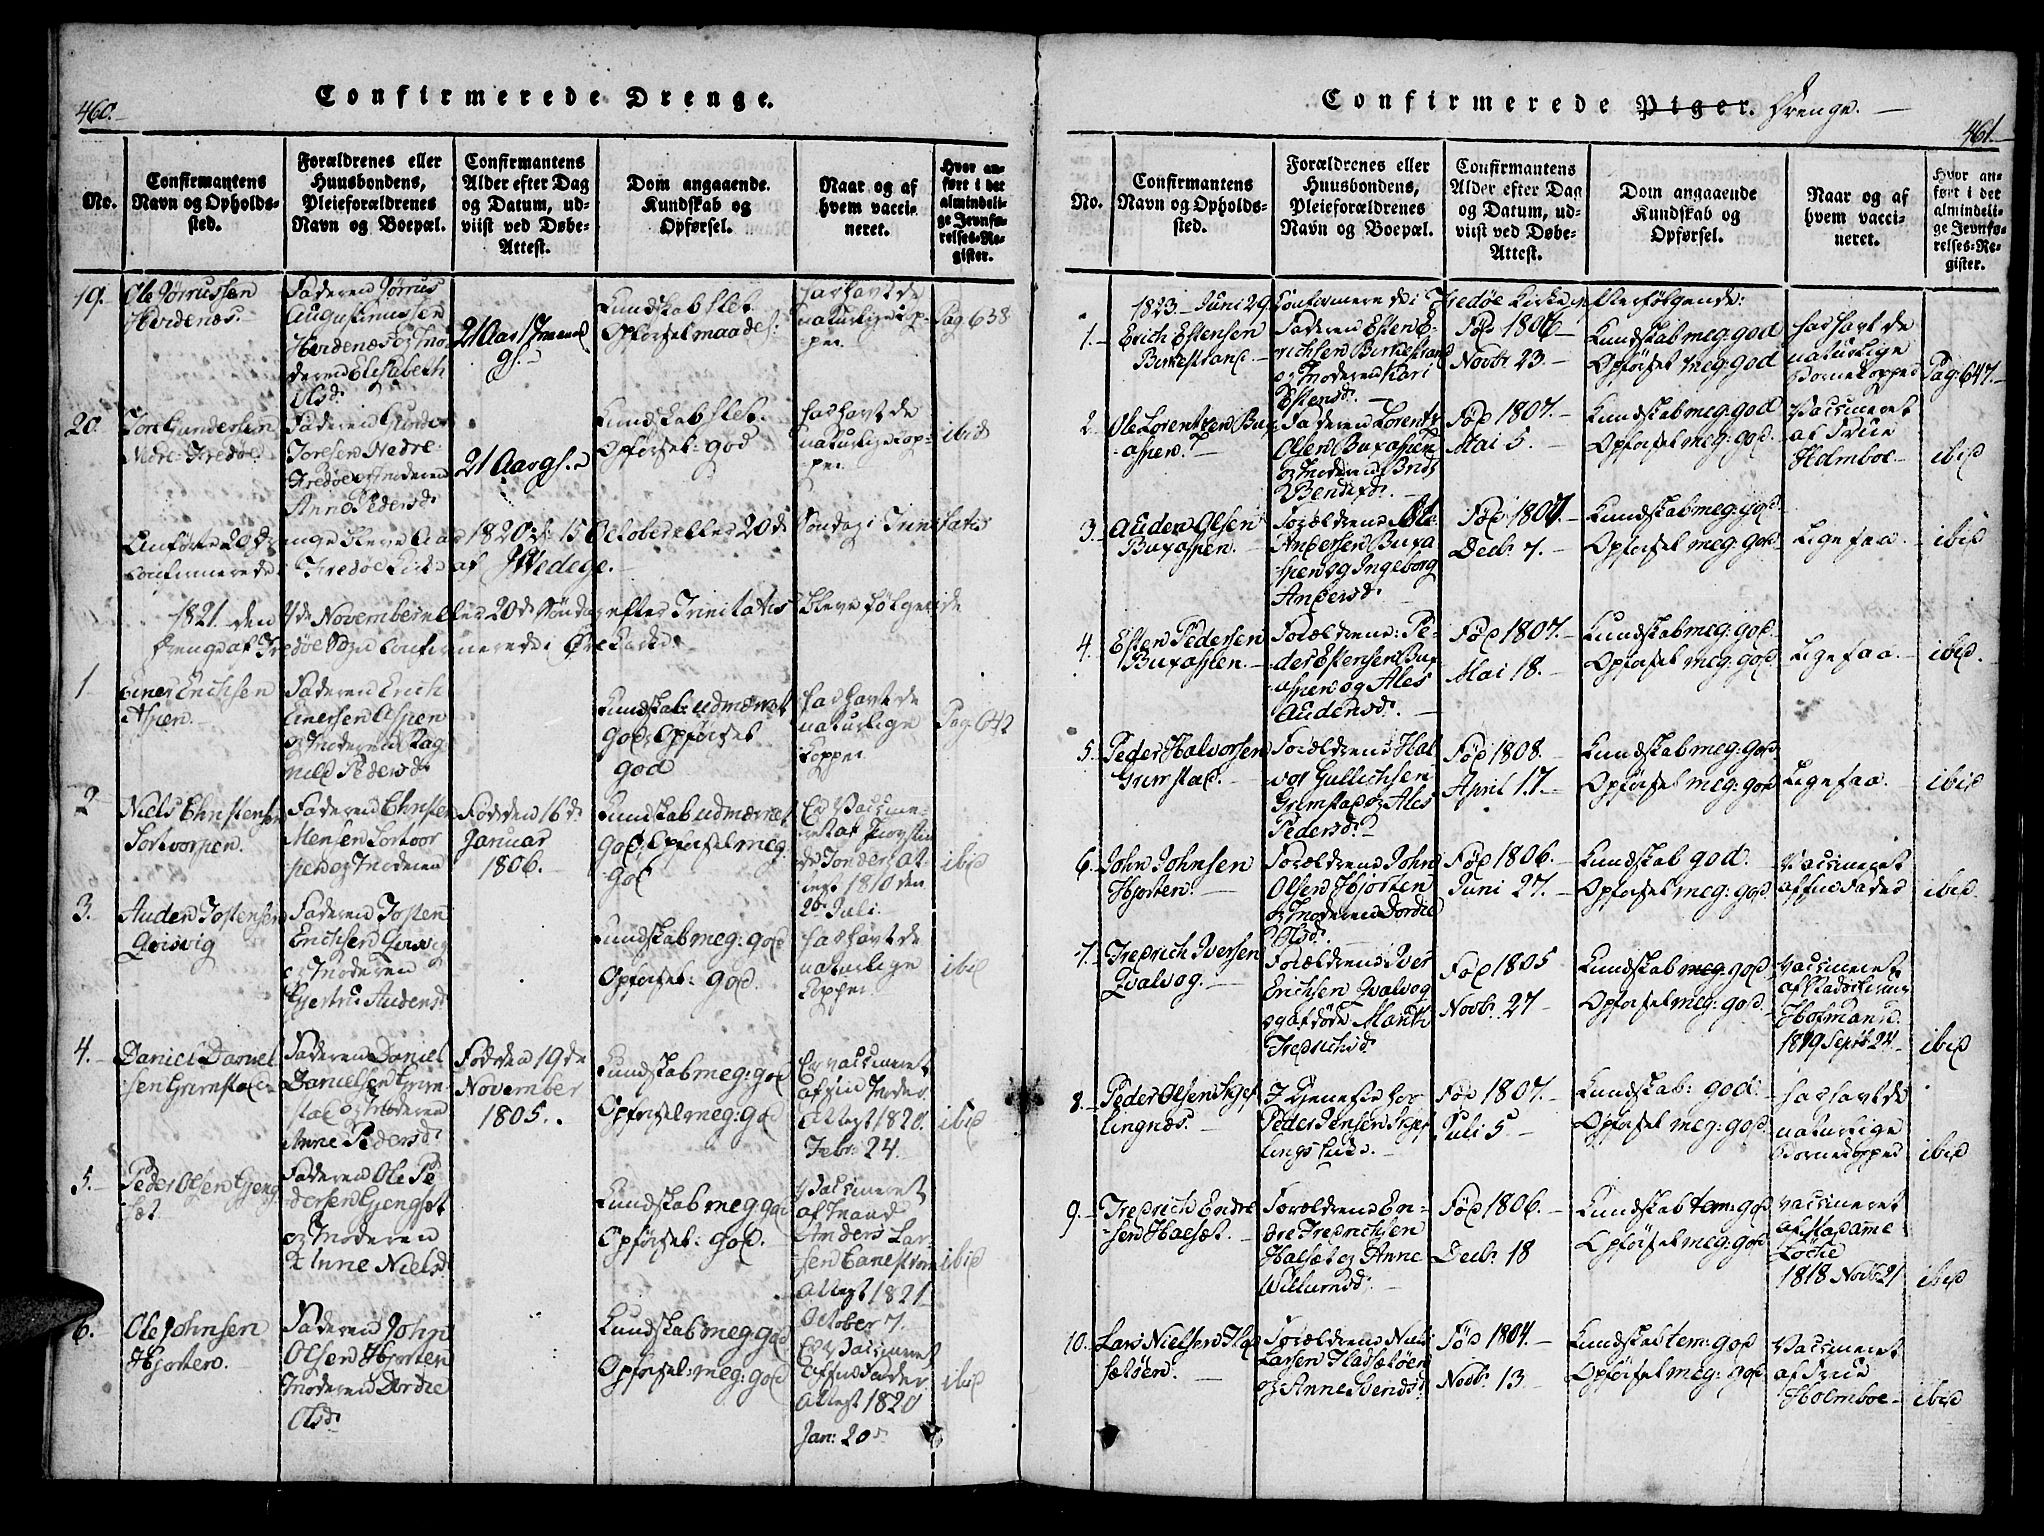 460.
Confirmerede Drenge.
No.
Confirmantens
Navn og Opholds-
sted.
Forældrenes eller
Huusbondens,
Pleieforældrenes
Navn og Boepæl.
Confirmantens
Alder efter Dag
og Datum, ud-
viist ved Døbe-
Attest.
Dom angaaende
Kundskab og
Opførsel.
Naar og af
hvem vacci-
neret.
Hvor an-
ført i det
almindeli-
ge Jevnfø-
relses-Re-
gister.
19.
Ole Jörnussen
Hvidenæs.
Faderen Jörnus
Augustinussen
Hvidenæs og Mo-
deren Elisabeth
Olsd:
21 Aar
gl.
Kundskab slet
Opförsel maadel:
har havt de
naturlige Kop-
per
Pag 638
20.
Tore Gundersen
Nedre Fredöe
Faderen Gunder
Toresen Nedre-
Fredöe og Moderen
Anne Pedersd:
21 Aar gl.
Kundskab slet.
Opförsel: god
har havt de
naturlige kop-
per.
ibid
Anförte 20 Drenge bleve Aar 1820 d: 15 October eller 20de Söndag i Trinitatis
confirmerede i Fredöe Kirke af Wedege.
1821 den 4de November eller 20de Söndag efter Trinitatis bleve fölgende
Drenge af Fredöe Sogn confirmerede i Öre Kirke:
1
Einer Erichsen
Aspen.
Faderen Erich
Einersen Aspen
og Moderen Rag-
nild Pedersd:
Kundskab: udmærket
god, Opförsel
god
har havt de
naturlige
Kopper
Pag: 642
2
Niels Christensen
Sortvorpen.
Faderen Christen
Mensen Sortvor
pen og Moderen
Född den 16de
Januar
1806.
Kundskab udmærket
god, Opförsel meg.
god
Er Vaccine-
ret af
Tonder at-
test 1810 den
26 Juli.
ibid
3.
Auden Jostensen
Qvisvig
Faderen Josten
Erichsen Qvisvig
og Moderen
Gjertru Audensd:
Kundskab meg: god
Opförsel: god.
har havt de
naturlige
Kopper.
ibid
4.
Daniel Daniel
sen Grimstad
Faderen Daniel
Danielsen Grim
stad og Moderen
Anne Pedersd:
Född den 19de
November
1805.
Kundskab meg: god
Opförsel meg: god
Er vaccineret
af sin Moder
Attest 1820.
Febr: 24.
ibid
5.
Peder Olsen Gjeng
sæt
Faderen Ole Pe
dersen Gjengsæt
og Moderen
Anne Nielsd:
Kundskab meg: god
Opförsel: god.
Vaccineret
af Mand
Anders Lar-
sen
Attest 1821
October 7.
ibid
6.
Ole Johnsen
Hjorten.
Faderen John
Olsen Hjorten
Moderen Dordie
Olsd:
Kundskab meg: god
Opförsel: meg: god
Er Vaccineret
af sin Fader
Attest 1820
Jan: 20
ibid
Confirmerede Piger. Drenge.
461.
No.
Confirmantens
Navn og Opholds-
sted.
Forældrenes eller
Huusbondens,
Pleieforældrenes
Navn og Boepæl.
Confirmantens
Alder efter Dag
og Datum, ud-
viist ved Døbe-
Attest.
Dom angaaende
Kundskab og
Opførsel.
Naar og af
hvem vacci-
neret.
Hvor an-
ført i det
almindeli-
ge Jevnfø-
relses-Re-
gister.
1823. Juni 29 Confirmerede i Fredöe Kirke efterfölgende:
1.
Erich Estensen
Birkestrand.
Faderen Esten E-
richsen Birkestrand
og Moderen Kari
Estensd:
Föd 1806
Novbr 23.
Kundskab meg: god
Opförsel meg: god
har havt de
naturlige
Börnekopper
Pag: 647.
2.
Ole Lorentzen Bux
aspen.
Faderen Lorentz
Olsen Buxaspen
og Moderen Brit
Bendixd:
Föd 1807.
Mai 5.
Kundskab meg: god
Opförsel meg: god.
Vaccineret
af Frue
Holmboe
ibid
3.
Auden Olsen
Buxaspen.
Forældrene Ole
Andersen Buxa
spen og Ingeborg
Andersd:
Föd 1807.
Decbr 7.
Kundskab meg: god.
Opförsel meg: god
Ligesaa.
ibid
4.
Esten Pedersen
Buxaspen
Forældrene: Pe-
der Estensen Bux
aspen og Ales
Audensd:
Föd 1807.
Mai 18.
Kundskab meg: god.
Opförsel meg: god
Ligesaa.
ibid.
5.
Peder Halvorsen
Grimstad.
Forældrene Hal
vor Gullichsen
Grimstad og Ales
Pedersd:
Föd 1808.
April 17.
Kundskab meg: god
Opförsel meg: god
Ligesaa.
ibid
6.
John Johnsen
Hjorten.
Forældrene John
Olsen Hjorten
og Moderen Dordie
Olsd:
Föd 1806.
Juni 27.
Kundskab god.
Opförsel meg: god
Vaccineret
af sin Fader
ibid.
7.
Fredrich Iversen
Qvalvog.
Forældrene Iver
Erichsen Qvalvog
og afdöde Marith
Fredrichsd:
Föd 1805
Novbr. 27
Kundskab meg god
Opförsel meg: god.
Vaccineret
af
Hofman
1819 Septbr 24
ibid
8.
Peder Olsen Skjef
lingnæs.
I Tjeneste for
Peder Jensen Skjef
lings
Föd 1807.
Juli 5
Kundskab: god.
Opförsel meg: god.
har havt de
naturlige
Börnekopper
ibid
9.
Fredrich Endre
sen Halsæt.
Forældrene En-
dre Fredrichsen
Halsæt og Anne
Willumsd:
Föd 1806.
Decbr. 18
Kundskab tem: god
Opförsel meg: god
vaccineret
af Madame
1818 Novbr 21
ibid
10.
Lars Nielsen Flad
sætöen.
Forældrene Niels
Larsen Fladsætöen
og Anne Svendsd:
Föd 1804.
Novbr. 13
Kundskab tem: god
Opförsel meg: god
Vaccineret
af Frue
Holmboe
ibid